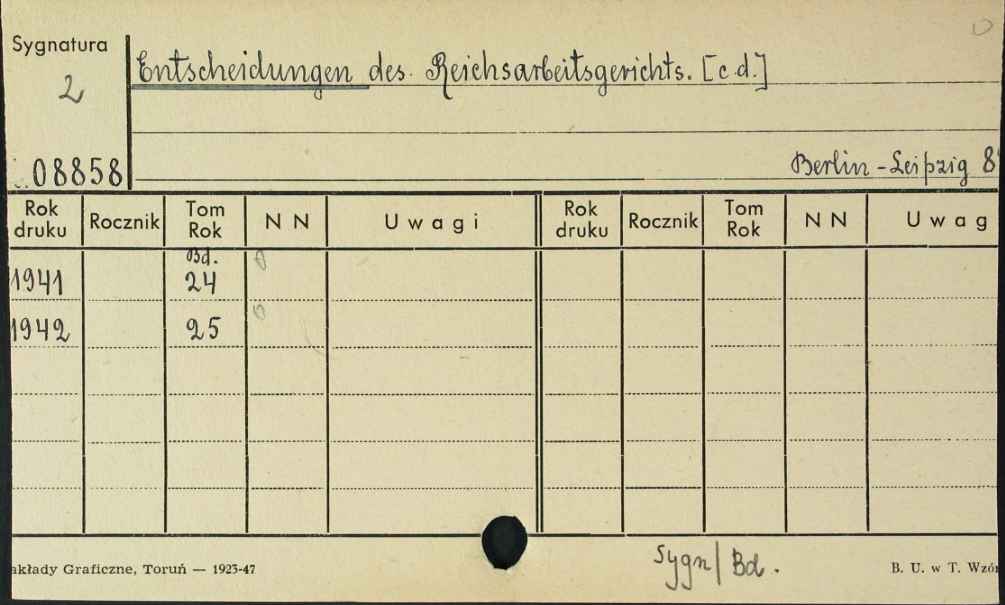 Sygnatura
2
08858
Entscheidungen des Reichsarbeitsgerichts. [c.d.]
Berlin - Leipzig 8
Rok druku Rocznik Tom Rok N N Uwagi Rok druku Rocznik Tom Rok N N Uwag
Bd.
1941 24
1942 25
Sygn/Bd.
akłady Graficzne, Toruń — 1923-47
B. U. w T. Wzór